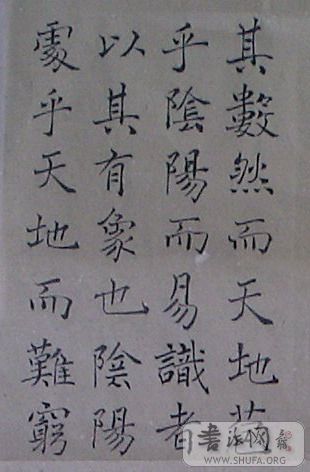 其數然而天地苞
乎陰陽而易識者
以其有象也陰陽
處乎天地而難窮
书法网
WWW.SHUFA.ORG